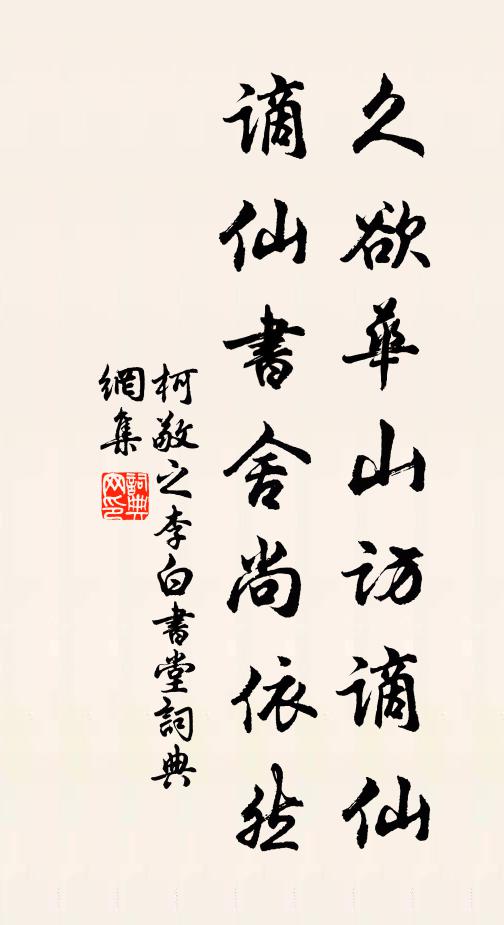 久欲華山訪謫仙
謫仙書舍尚依然
柯敬之李白書堂詞典
網集
詞典
网印